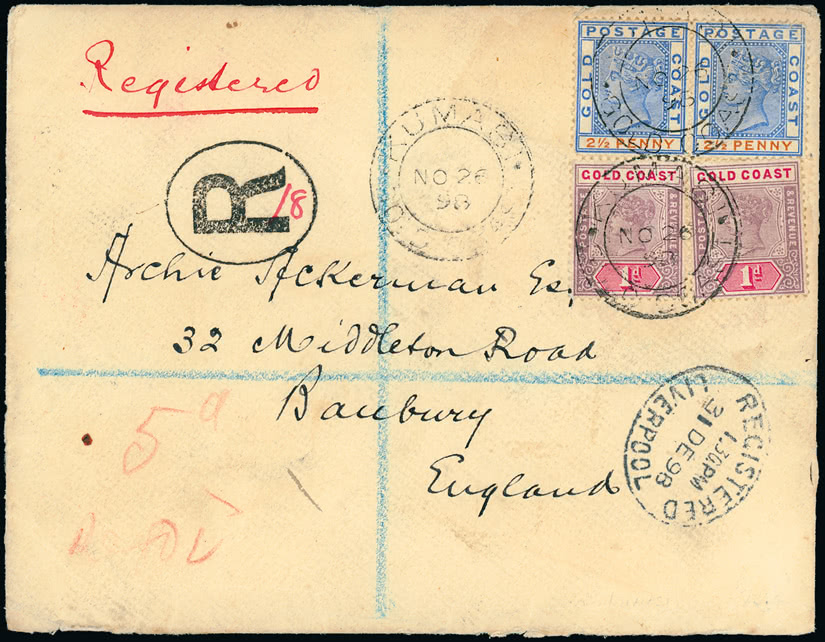 Registered
R
18
KUMASI
NO 26
98
POSTAGE
GOLD COAST
2½ PENNY
POSTAGE
GOLD COAST
2½ PENNY
GOLD COAST
POSTAGE & REVENUE
1d
GOLD COAST
POSTAGE & REVENUE
1d
NO 26
Archie Ackerman Esq.
32 Middleton Road
Banbury
England
5d
REGISTERED
1.30PM
31 DE 98
LIVERPOOL